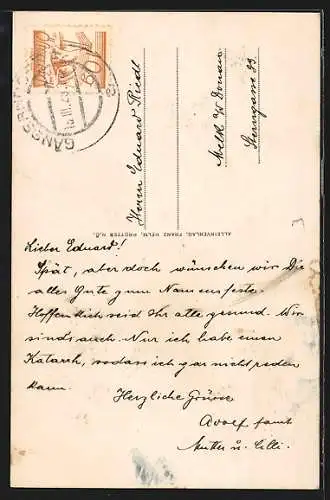 GÄNSERNDORF
15.III.29
Herrn Eduard Riedl
Melk a/ Donau
Sterngasse 23
ALLEINVERLAG: FRANZ HELM, N.Ö.
Lieber Eduard!
Spät, aber doch wünschen wir Dir
alles Gute zum Namensfeste.
Hoffentlich seid Ihr alle gesund. Wir
sinds auch. Nur ich habe einen
Katarrh, sodass ich gar nicht reden
kann.
Herzliche Grüsse
Adolf samt
Mutter u. Cilli.